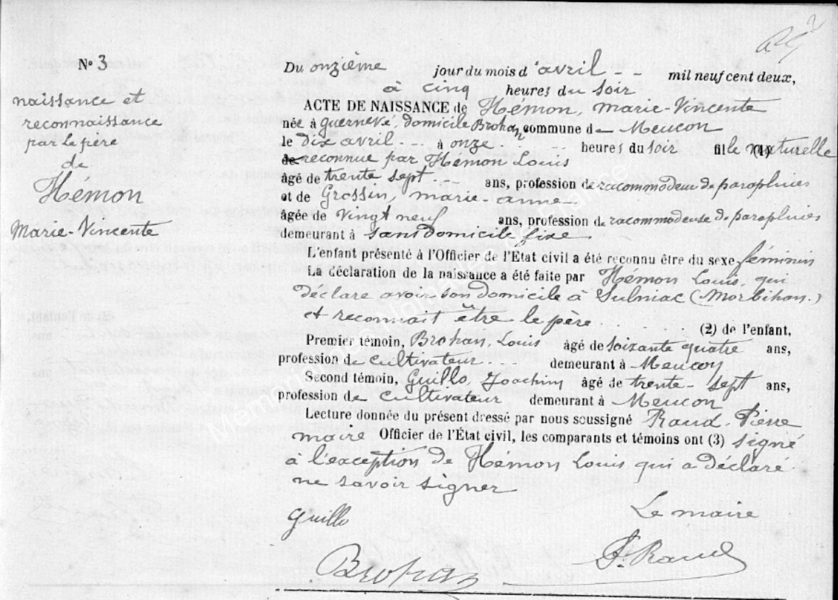 N° 3
naissance et
reconnaissance
par le père
de
Hémon
Marie-Vincente
Du onzième jour du mois d'avril -- mil neuf cent deux,
à cinq heures du soir
ACTE DE NAISSANCE de Hémon, Marie-Vincente
née à guernevé, domicile Brohan, commune de Meucon
le dix avril -- à onze -- heures du soir fille (1) naturelle
de reconnue par Hémon Louis
âgé de trente sept -- ans, profession de racommodeur de parapluies
et de Grossin, marie-anne
âgée de vingt neuf ans, profession de racommodeuse de parapluies
demeurant à sans domicile fixe
L'enfant présenté à l'Officier de l'État civil a été reconnu être du sexe féminin
La déclaration de la naissance a été faite par Hémon Louis, qui
déclare avoir son domicile à Sulniac (Morbihan.)
et reconnait être le père (2) de l'enfant,
Premier témoin, Brohan, Louis âgé de soixante quatre ans,
profession de cultivateur demeurant à Meucon
Second témoin, Guillo, Joachim âgé de trente-sept ans,
profession de cultivateur demeurant à Meucon
Lecture donnée du présent dressé par nous soussigné Raud, Pierre
maire Officier de l'État civil, les comparants et témoins ont (3) signé
à l'exception de Hémon Louis qui a déclaré
ne savoir signer
Guillo Le maire
Brohan P. Raud